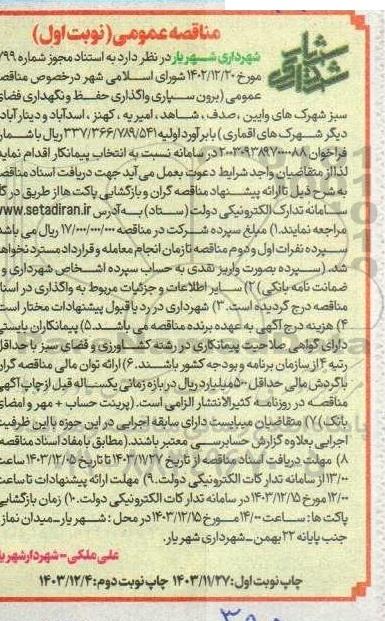 مناقصه عمومی (نوبت اول)
شهرداری شهریار
شهرداری شهریار در نظر دارد به استناد مجوز شماره ۷۹۹
مورخ ۱۴۰۲/۱۲/۲۰ شورای اسلامی شهر درخصوص مناقصه
عمومی (برون سپاری واگذاری حفظ و نگهداری فضای
سبز شهرک های وایین ، صدف ، شاهد ، امیریه ، کهنز ، اسدآباد و دینارآباد
دیگر شهرک های اقماری) با برآورد اولیه ۳۳۷/۳۶۶/۷۸۹/۵۴۱ ریال با شماره
فراخوان ۲۰۰۳۰۹۳۹۷۰۰۰۰۸۸ در سامانه نسبت به انتخاب پیمانکار اقدام نماید
لذا از متقاضیان واجد شرایط دعوت بعمل می آید جهت دریافت اسناد مناقصه
به شرح ذیل تا ارائه پیشنهاد مناقصه گران و بازگشایی پاکت ها از طریق درگاه
سامانه تدارک الکترونیکی دولت (ستاد) به آدرس www.setadiran.ir
مراجعه نمایند. ۱) مبلغ سپرده شرکت در مناقصه ۱۷/۰۰۰/۰۰۰/۰۰۰ ریال می باشد
سپرده نفرات اول و دوم مناقصه تا زمان انجام معامله و قرارداد مسترد نخواهد
شد. (سپرده بصورت واریز نقدی به حساب سپرده اشخاص شهرداری و
ضمانت نامه بانکی) ۲) سایر اطلاعات و جزئیات مربوط به واگذاری در اسناد
مناقصه درج گردیده است. ۳) شهرداری در رد یا قبول پیشنهادات مختار است
۴) هزینه درج آگهی به عهده برنده مناقصه می باشد. ۵) پیمانکاران بایستی
دارای گواهی صلاحیت پیمانکاری در رشته کشاورزی و فضای سبز با حداقل
رتبه ۴ از سازمان برنامه و بودجه کشور باشند. ۶) ارائه توان مالی مناقصه گران
با گردش مالی حداقل ۵۰۰ میلیارد ریال در بازه زمانی یکساله قبل از چاپ آگهی
مناقصه در روزنامه کثیرالانتشار الزامی است. (پرینت حساب + مهر و امضای
بانک) ۷) متقاضیان میبایست دارای سابقه اجرایی در این حوزه با این ظرفیت
اجرایی بعلاوه گزارش حسابرسی معتبر باشند. (مطابق با مفاد اسناد مناقصه
۸) مهلت دریافت اسناد مناقصه از تاریخ ۱۴۰۳/۱۱/۲۷ تا تاریخ ۱۴۰۳/۱۲/۰۵ ساعت
۱۳/۰۰ از سامانه تدارکات الکترونیکی دولت. ۹) مهلت ارائه پیشنهادات تا ساعت
۱۲/۰۰ مورخ ۱۴۰۳/۱۲/۱۵ در سامانه تدارکات الکترونیکی دولت. ۱۰) زمان بازگشایی
پاکت ها : ساعت ۱۴/۰۰ مورخ ۱۴۰۳/۱۲/۱۵ در محل : شهریار_میدان نماز
جنب پایانه ۲۲ بهمن_شهرداری شهریار.
علی ملکی – شهردار شهریار
چاپ نوبت اول: ۱۴۰۳/۱۱/۲۷ چاپ نوبت دوم: ۱۴۰۳/۱۲/۴